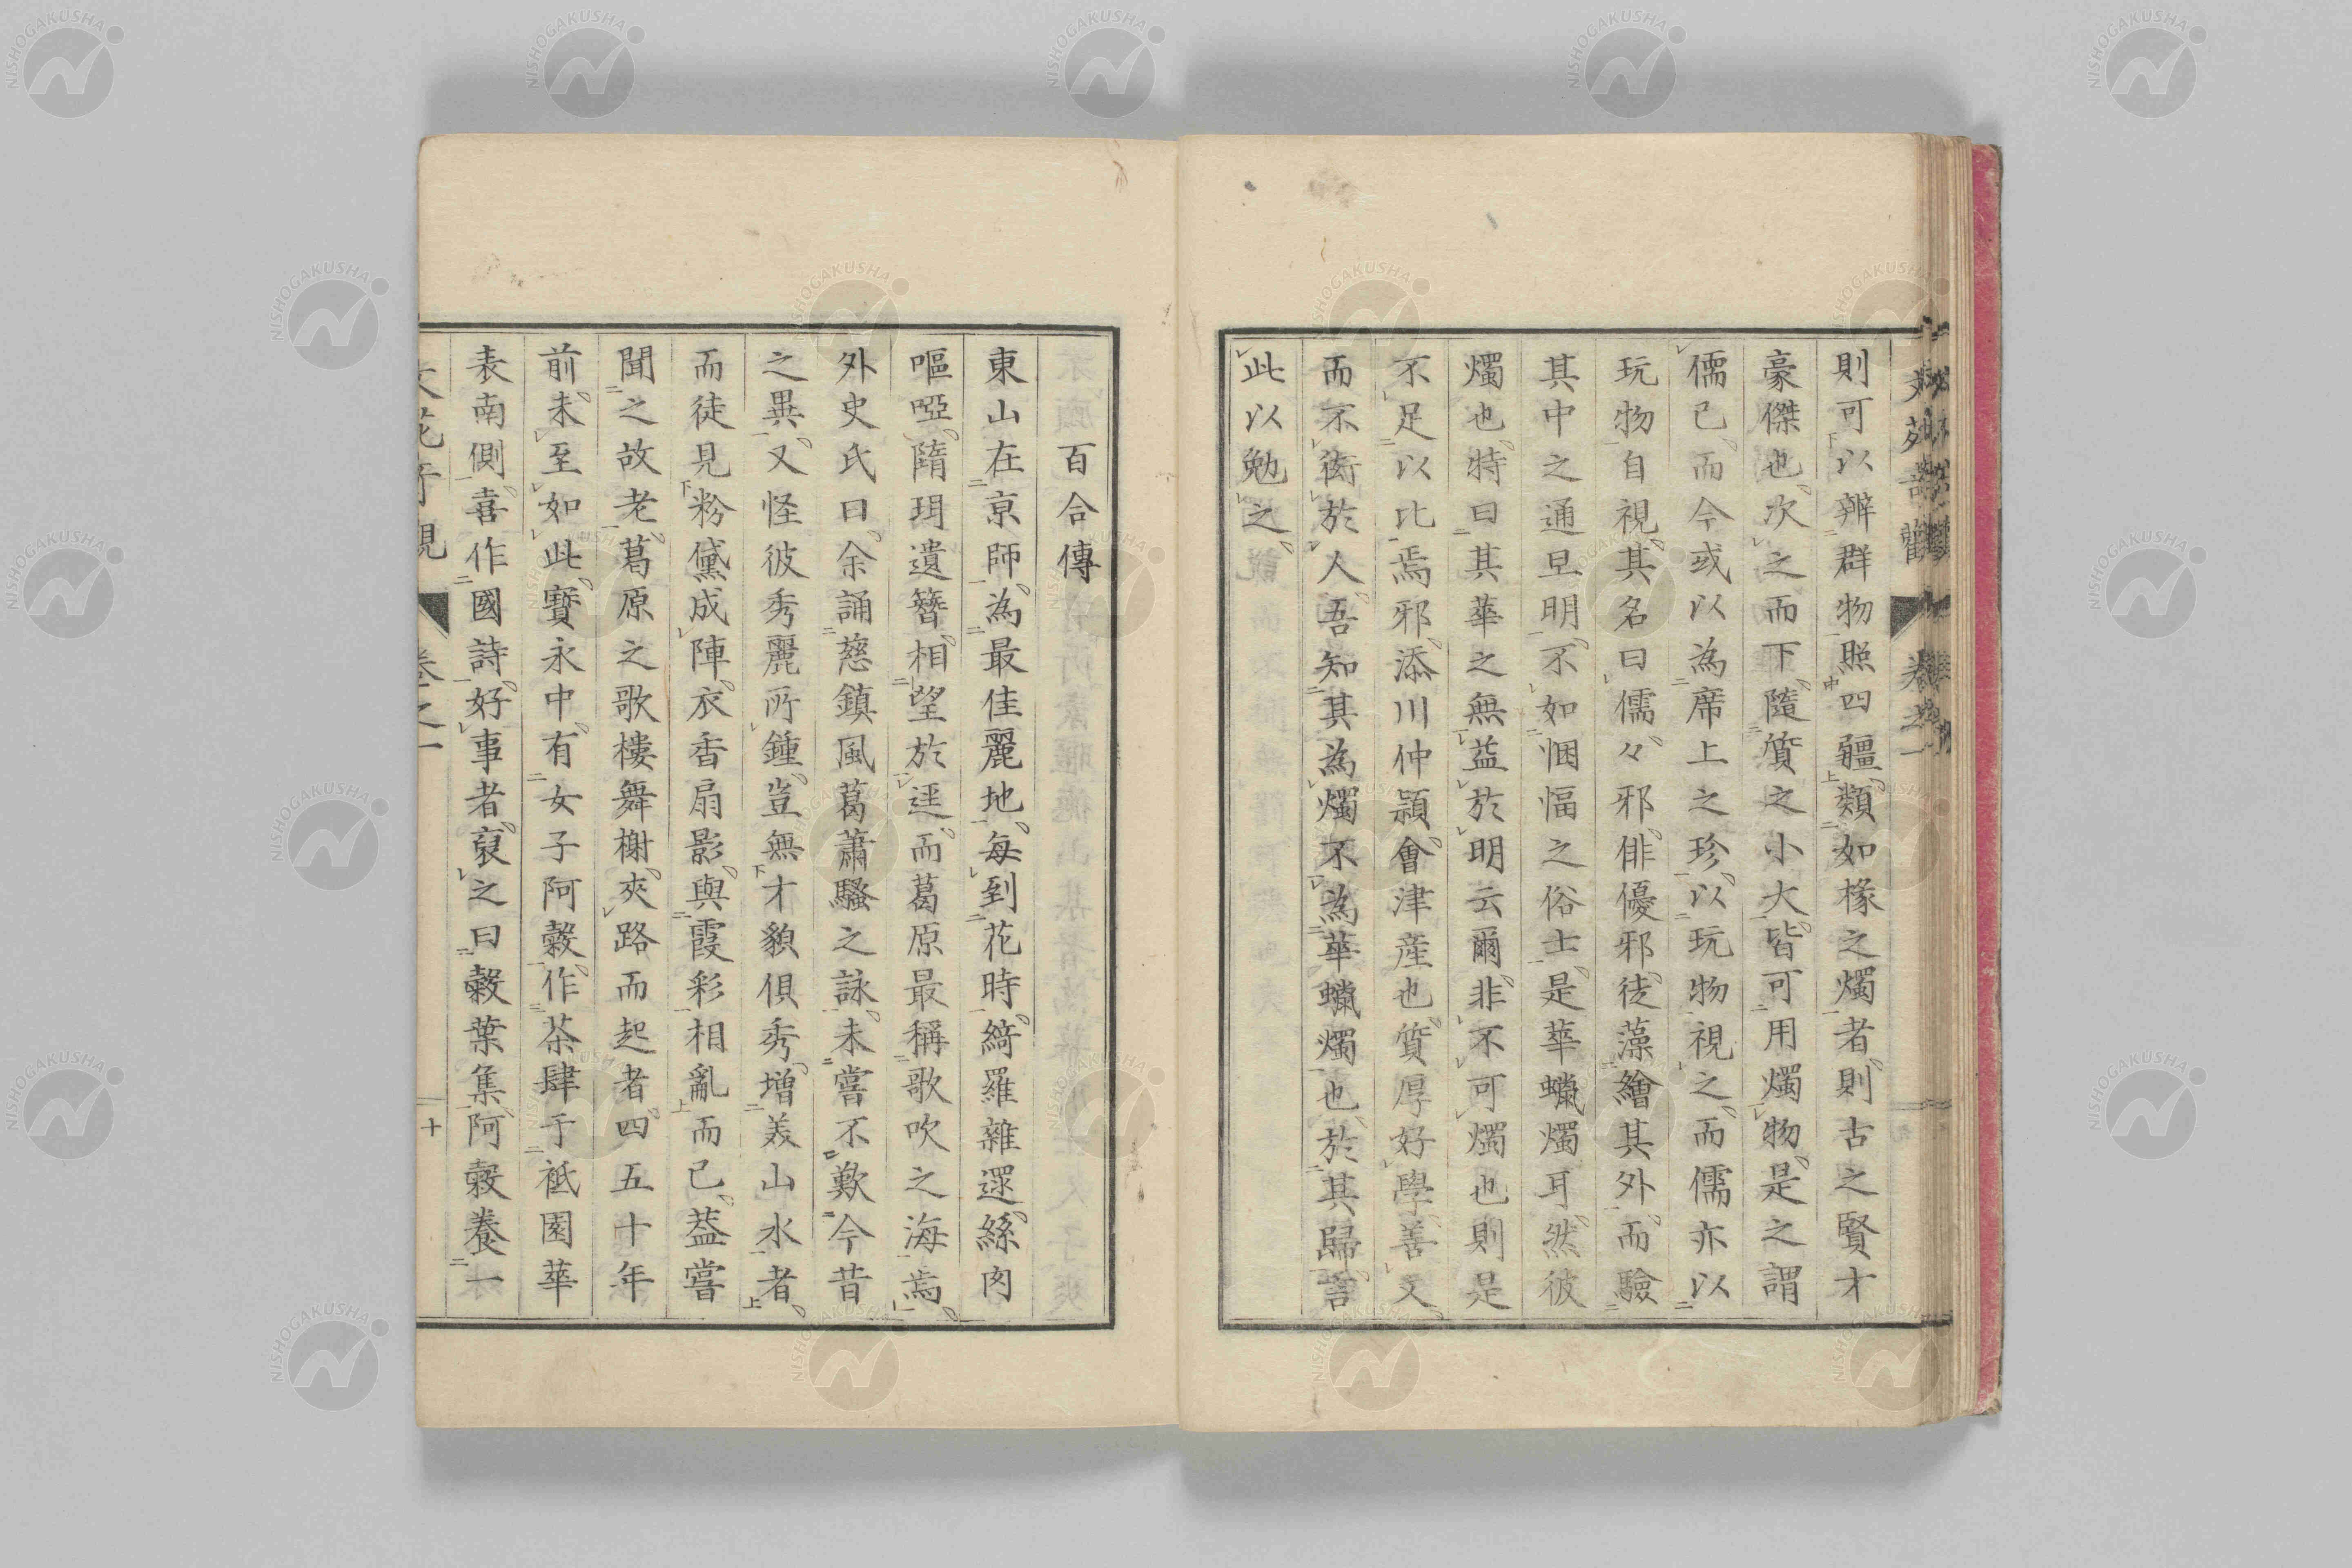 則可以辨群物照四疆類如椽之燭者則古之賢才
豪傑也次之而下隨質之小大皆可用燭物是之謂
儒已而今或以為席上之珍以玩物視之而儒亦以
玩物自視其名曰儒々邪俳優邪徒藻繪其外而驗
其中之通旦明不如悃愊之俗士是華蠟燭耳然彼
燭也特曰其華之無益於明云爾非不可燭也則是
不足以比焉邪添川仲穎會津産也質厚好學善文
而不衒於人吾知其為燭不為華蠟燭也於其歸言
此以勉之
百合傳
東山在京師為最佳麗地每到花時綺羅雜遝絲肉
嘔啞隋珥遺簪相望於逕而葛原最稱歌吹之海焉
外史氏曰余誦慈鎮風葛蕭騷之詠未嘗不歎今昔
之異又怪彼秀麗所鍾豈無才貌俱秀增羙山水者
而徒見粉黛成陣衣香扇影與霞彩相亂而已葢嘗
聞之故老葛原之歌樓舞榭夾路而起者四五十年
前未至如此寶永中有女子阿縠作茶肆于祗園華
表南側喜作國詩好事者裒之曰縠葉集阿縠養一
卷之一
十
NISHOGAKUSHA